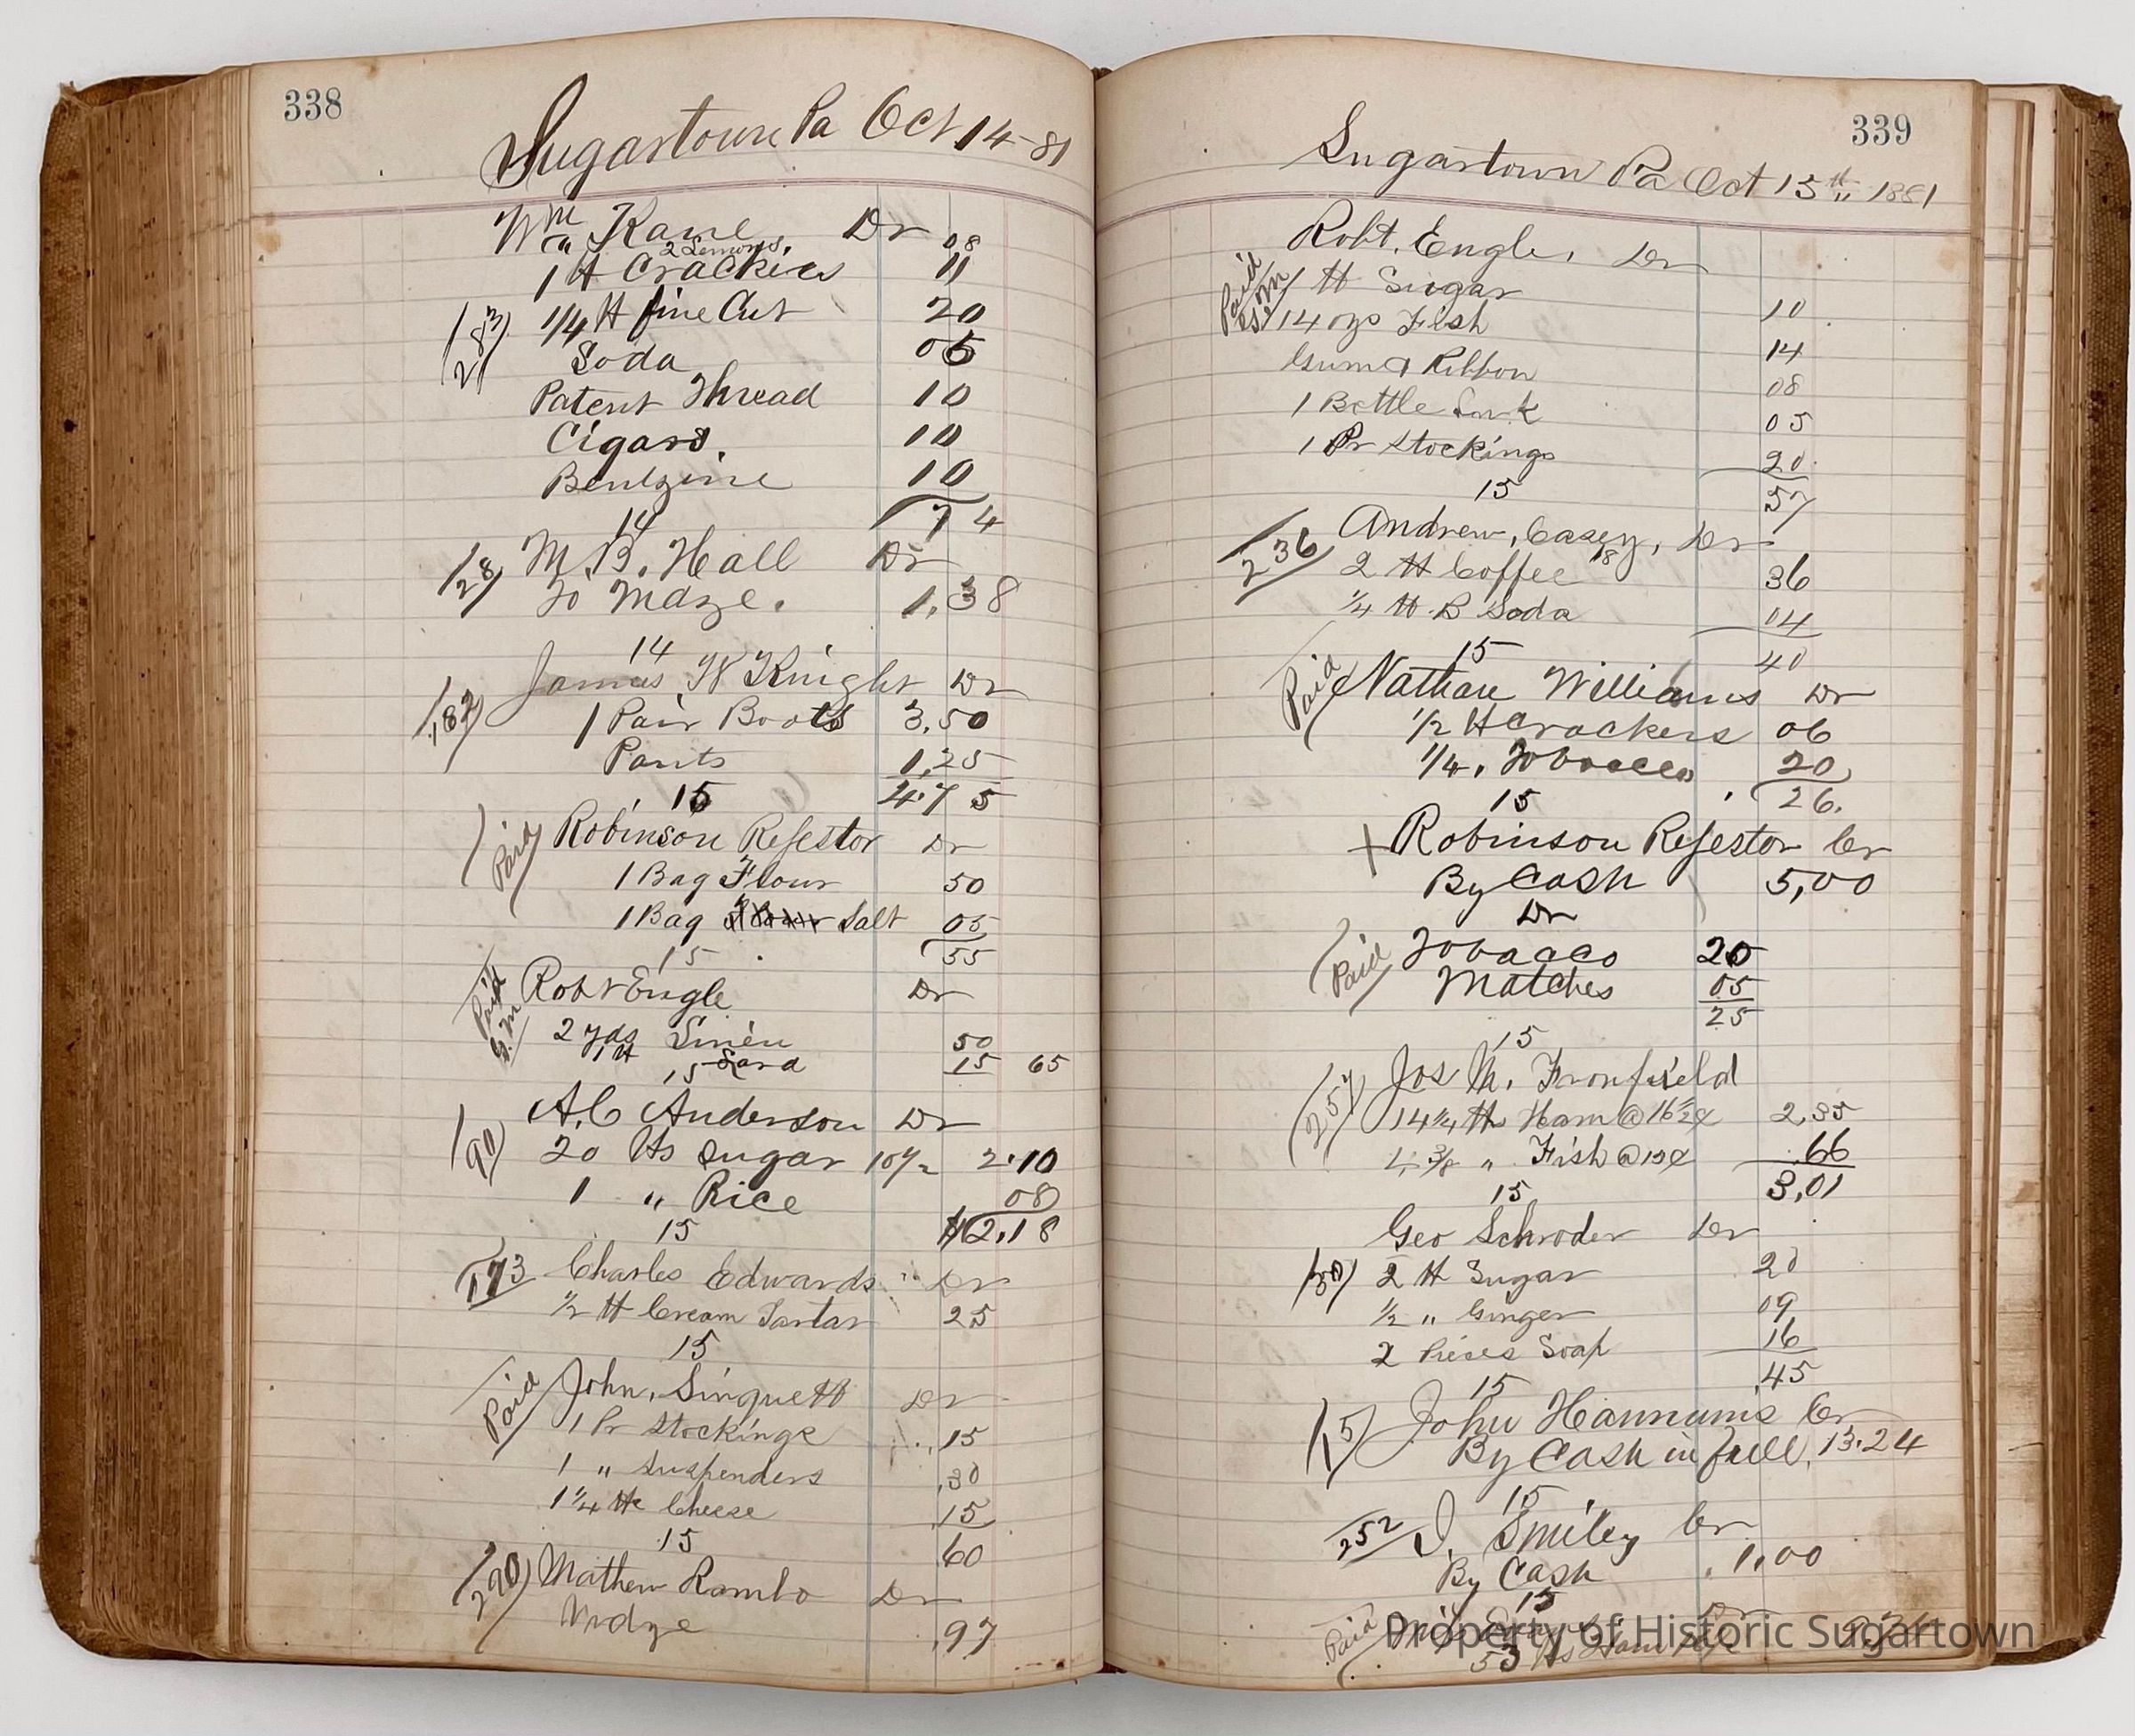 338
Sugartown Pa Oct 14-81
Wm Kane Dr
2 Lemons, 08
1 ℔ Crackers 11
283 1/4 ℔ fine Cut 20
Soda 05
Patent Thread 10
Cigars. 10
Bentzine 10
14 74
128 M. B. Hall Dr
To Mdze. 1,38
14
182 James W Knight Dr
1 Pair Boots 3,50
Pants 1,25
15 4.75
Paid Robinson Refestor Dr
1 Bag Flour 50
1 Bag Salt 05
15 55
Paid Robt Engle Dr
2 yds Linen 50
1 ℔ Lard 15 65
15
90 A. C Anderson Dr
20 ℔s Sugar 10 1/2 2.10
1 " Rice 08
15 2.18
173 Charles Edwards Dr
1/2 ℔ Cream Tartar 25
15
Paid John, Singuett Dr
1 Pr Stockings 15
1 " Suspenders .30
1 1/4 ℔ Cheese .15
15 .60
290 Mathew Rambo Dr
Mdze .97
339
Sugartown Pa Oct 15th " 1881
Robt. Engle, Dr
Paid
1 ℔ Sugar 10
14 ozs Fish 14
Gum & Ribbon 08
1 Bottle Ink 05
1 Pr Stockings 20
15 57
236 Andrew, Casey, Dr
2 ℔ Coffee 18 36
1/4 ℔ B Soda 04
15 40
Paid Nathan Williams Dr
1/2 ℔ Crackers 06
1/4, Tobacco 20
15 26.
+ Robinson Refestor Cr
By Cash 5,00
Dr
Paid Tobacco 20
Matches 05
25
15
257 Jos M. Fronfield
14 1/4 ℔s Ham @ 16 1/2 ¢ 2.35
4 3/8 " Fish @ 15¢ .66
15 3,01
Geo Schroder Dr
30 2 ℔ Sugar 20
1/2 " Ginger 09
2 Pieces Soap 16
15 .45
15 John Hannums Cr
By Cash in full, 13.24
15
252 J. Smiley Cr
By Cash 1,00
15
Paid Dr
Property of Historic Sugartown